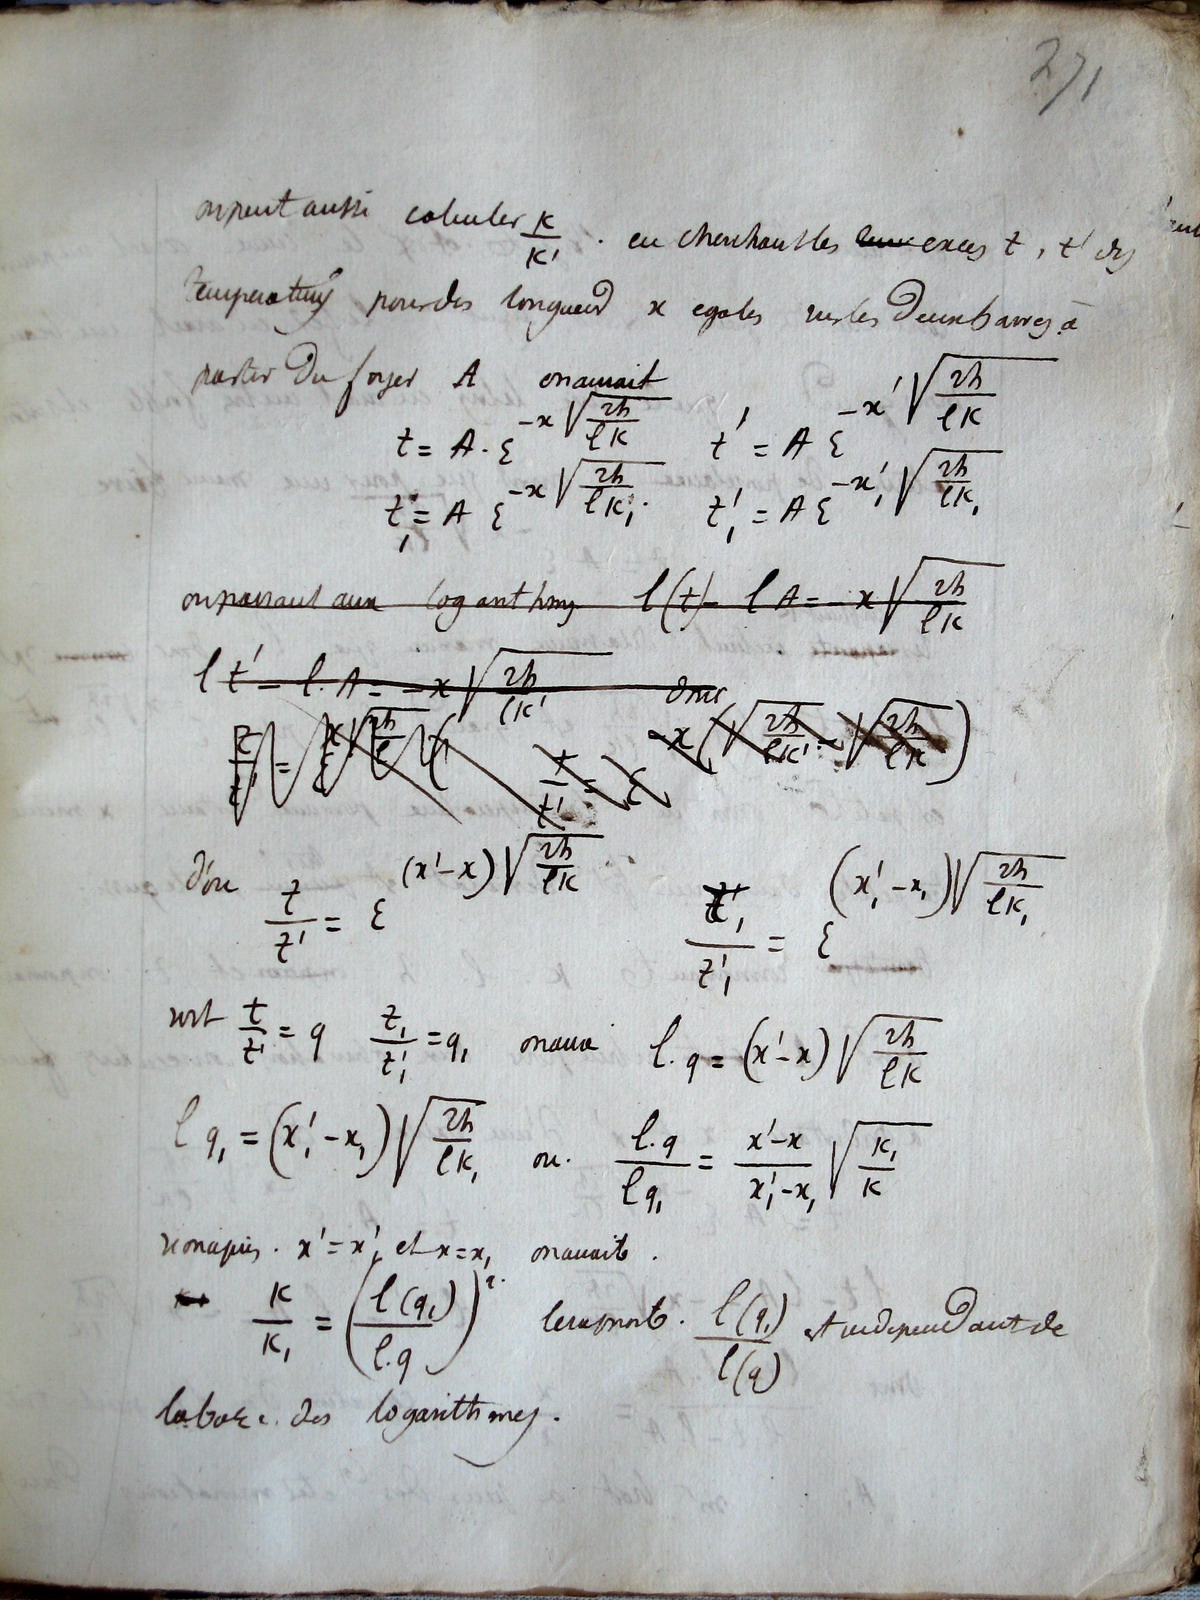 271
on peut aussi calculer K/K' . en cherchant les exces t, t' des
temperatures pour des longueurs x egales sur les deux barres à
partir du foyer A on aurait
t = A · ε^{-x√(2h/lK)}   t' = A ε^{-x'√(2h/lK)}
t₁ = A ε^{-x√(2h/lK₁)}.   t'₁ = A ε^{-x'₁√(2h/lK₁)}
on passant aux logarithmes l(t) - lA = -x√(2h/lK)
l t' - l. A = -x√(2h/lK')   donc
t/t' = ε -x(√(2h/lK') - √(2h/lK))
d'ou t/t' = ε^{(x'-x)√(2h/lK)}   t'₁/t'₁ = ε^{(x'₁-x₁)√(2h/lK₁)}
soit t/t' = q   t₁/t'₁ = q₁   on aura   l. q = (x'-x)√(2h/lK)
l q₁ = (x'₁-x₁)√(2h/lK₁)   ou.   l.q/lq₁ = (x'-x)/(x'₁-x₁) √(K₁/K)
si on a pris . x' = x'₁ et x = x₁ on aurait .
K/K₁ = (l(q₁)/l.q)².   le rapport . l(q₁)/l(q) est independant de
la base des logarithmes.